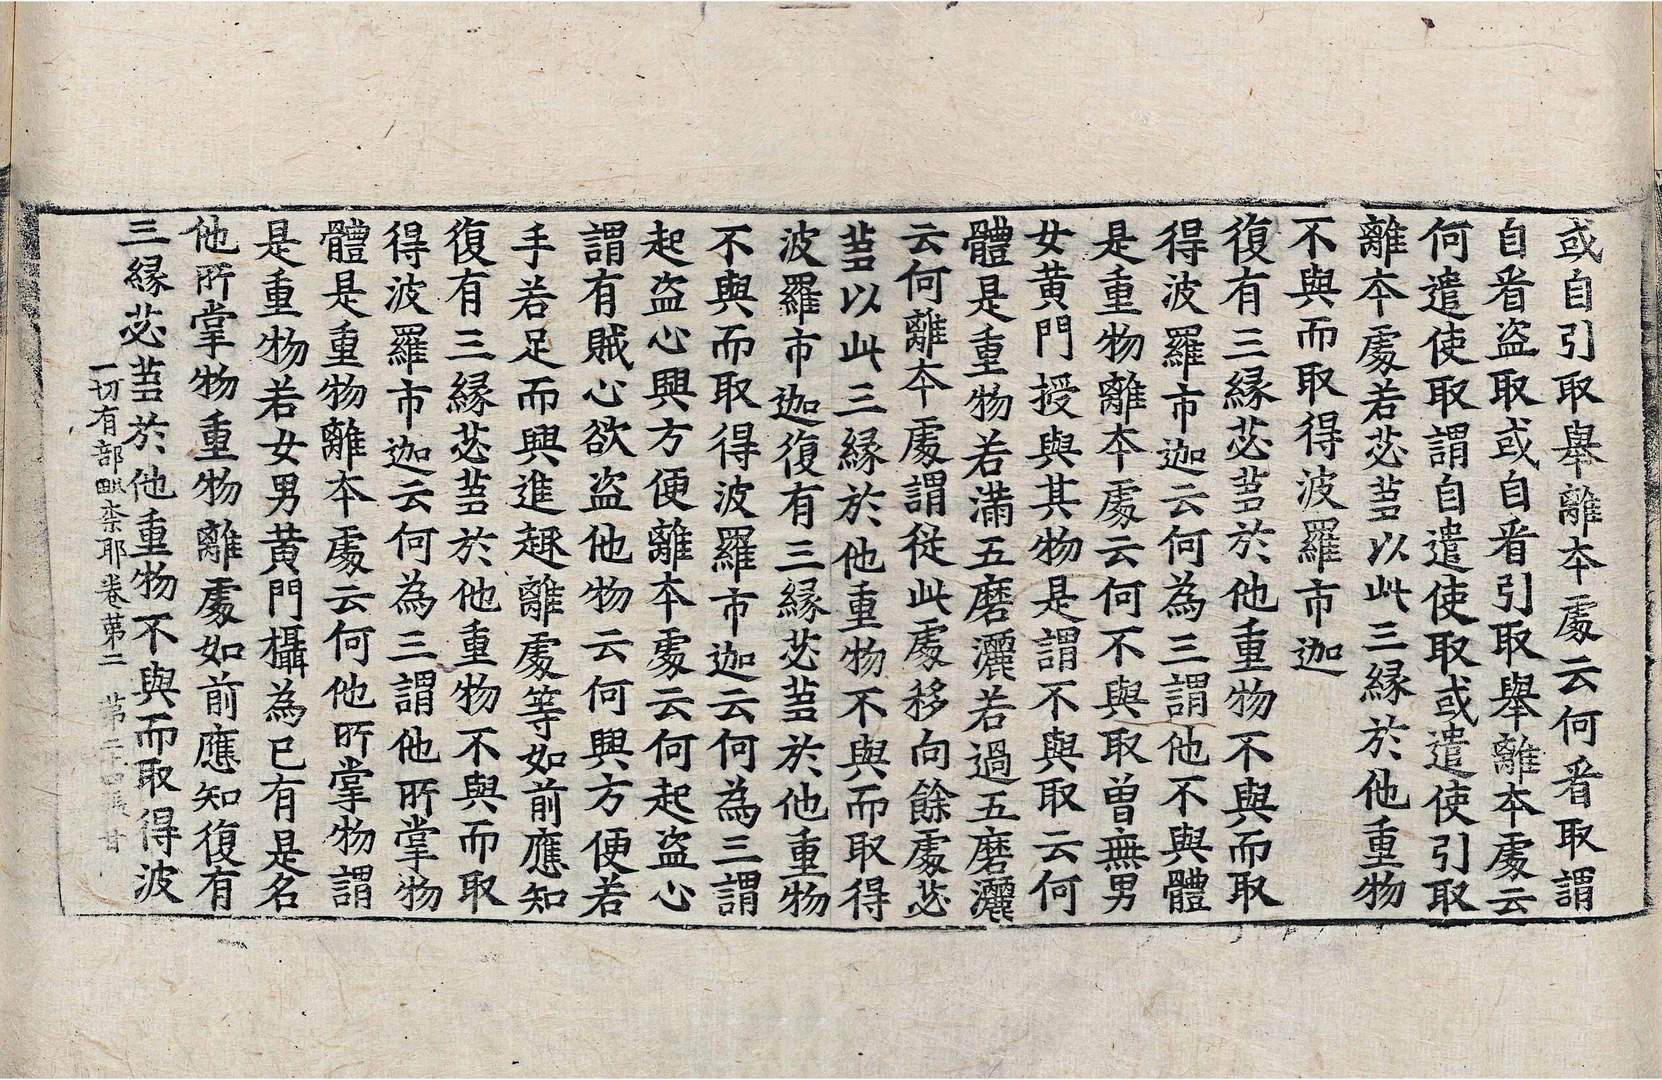 或自引取舉離本處云何看取謂
自看盗取或自看引取舉離本處云
何遣使取謂自遣使取或遣使引取
離本處若苾芻以此三緣於他重物
不與而取得波羅市迦
復有三緣苾芻於他重物不與而取
得波羅市迦云何為三謂他不與體
是重物離本處云何不與取曾無男
女黄門授與其物是謂不與取云何
體是重物若滿五磨灑若過五磨灑
云何離本處謂從此處移向餘處苾
芻以此三緣於他重物不與而取得
波羅市迦復有三緣苾芻於他重物
不與而取得波羅市迦云何為三謂
起盗心興方便離本處云何起盗心
謂有賊心欲盗他物云何興方便若
手若足而興進趣離處等如前應知
復有三緣苾芻於他重物不與而取
得波羅市迦云何為三謂他所掌物
體是重物離本處云何他所掌物謂
是重物若女男黄門攝為已有是名
他所掌物重物離處如前應知復有
三緣苾芻於他重物不與而取得波
一切有部毗奈耶卷第二 第二十四張 甘